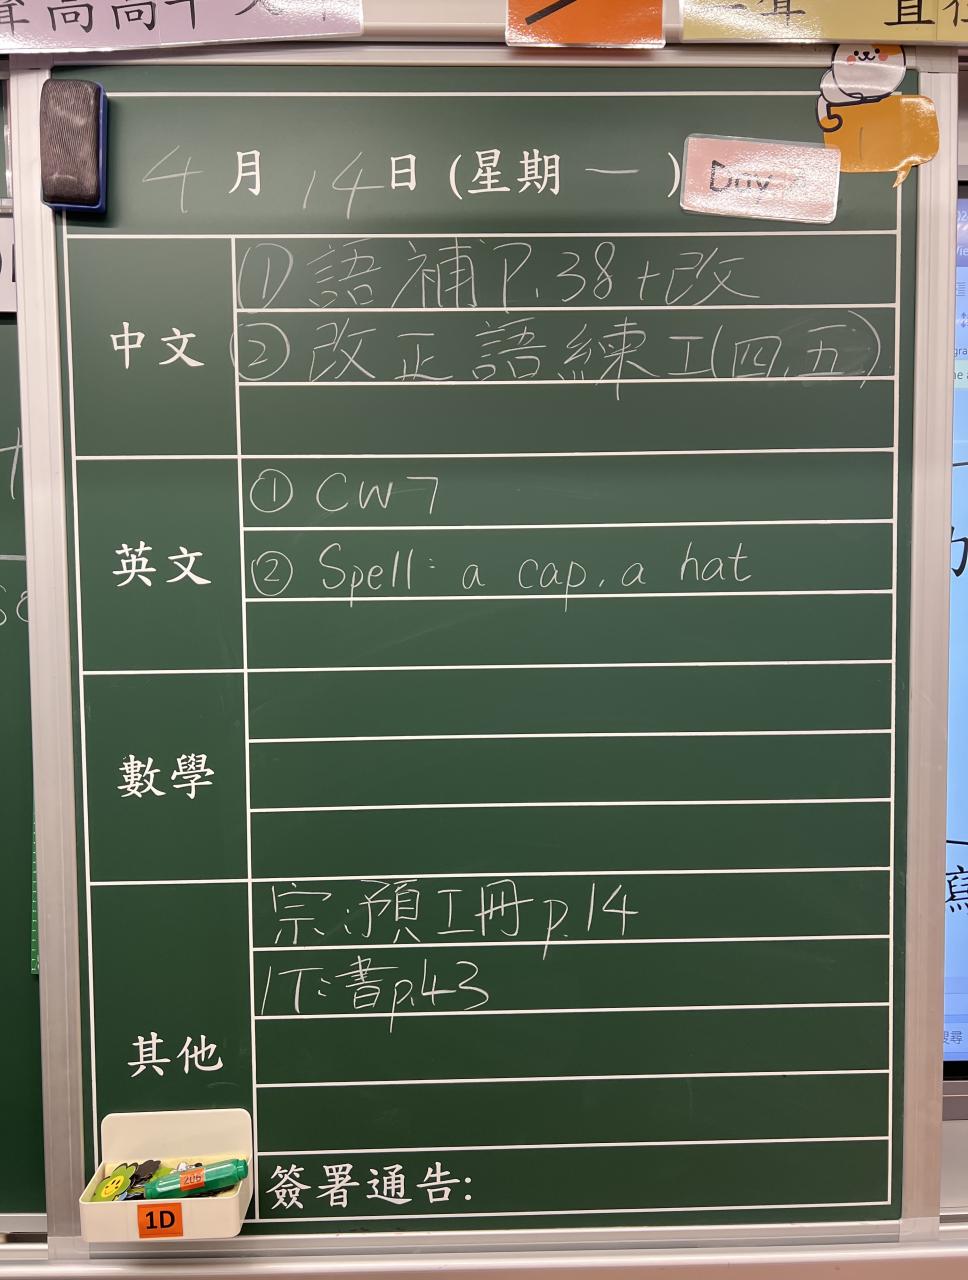 4月14日(星期一)
Day
中文
①語補P.38+改
②改正語練工(四、五)
英文
① CW7
② Spell: a cap, a hat
數學
其他
宗:預工冊p.14
IT:書p.43
簽署通告:
1D